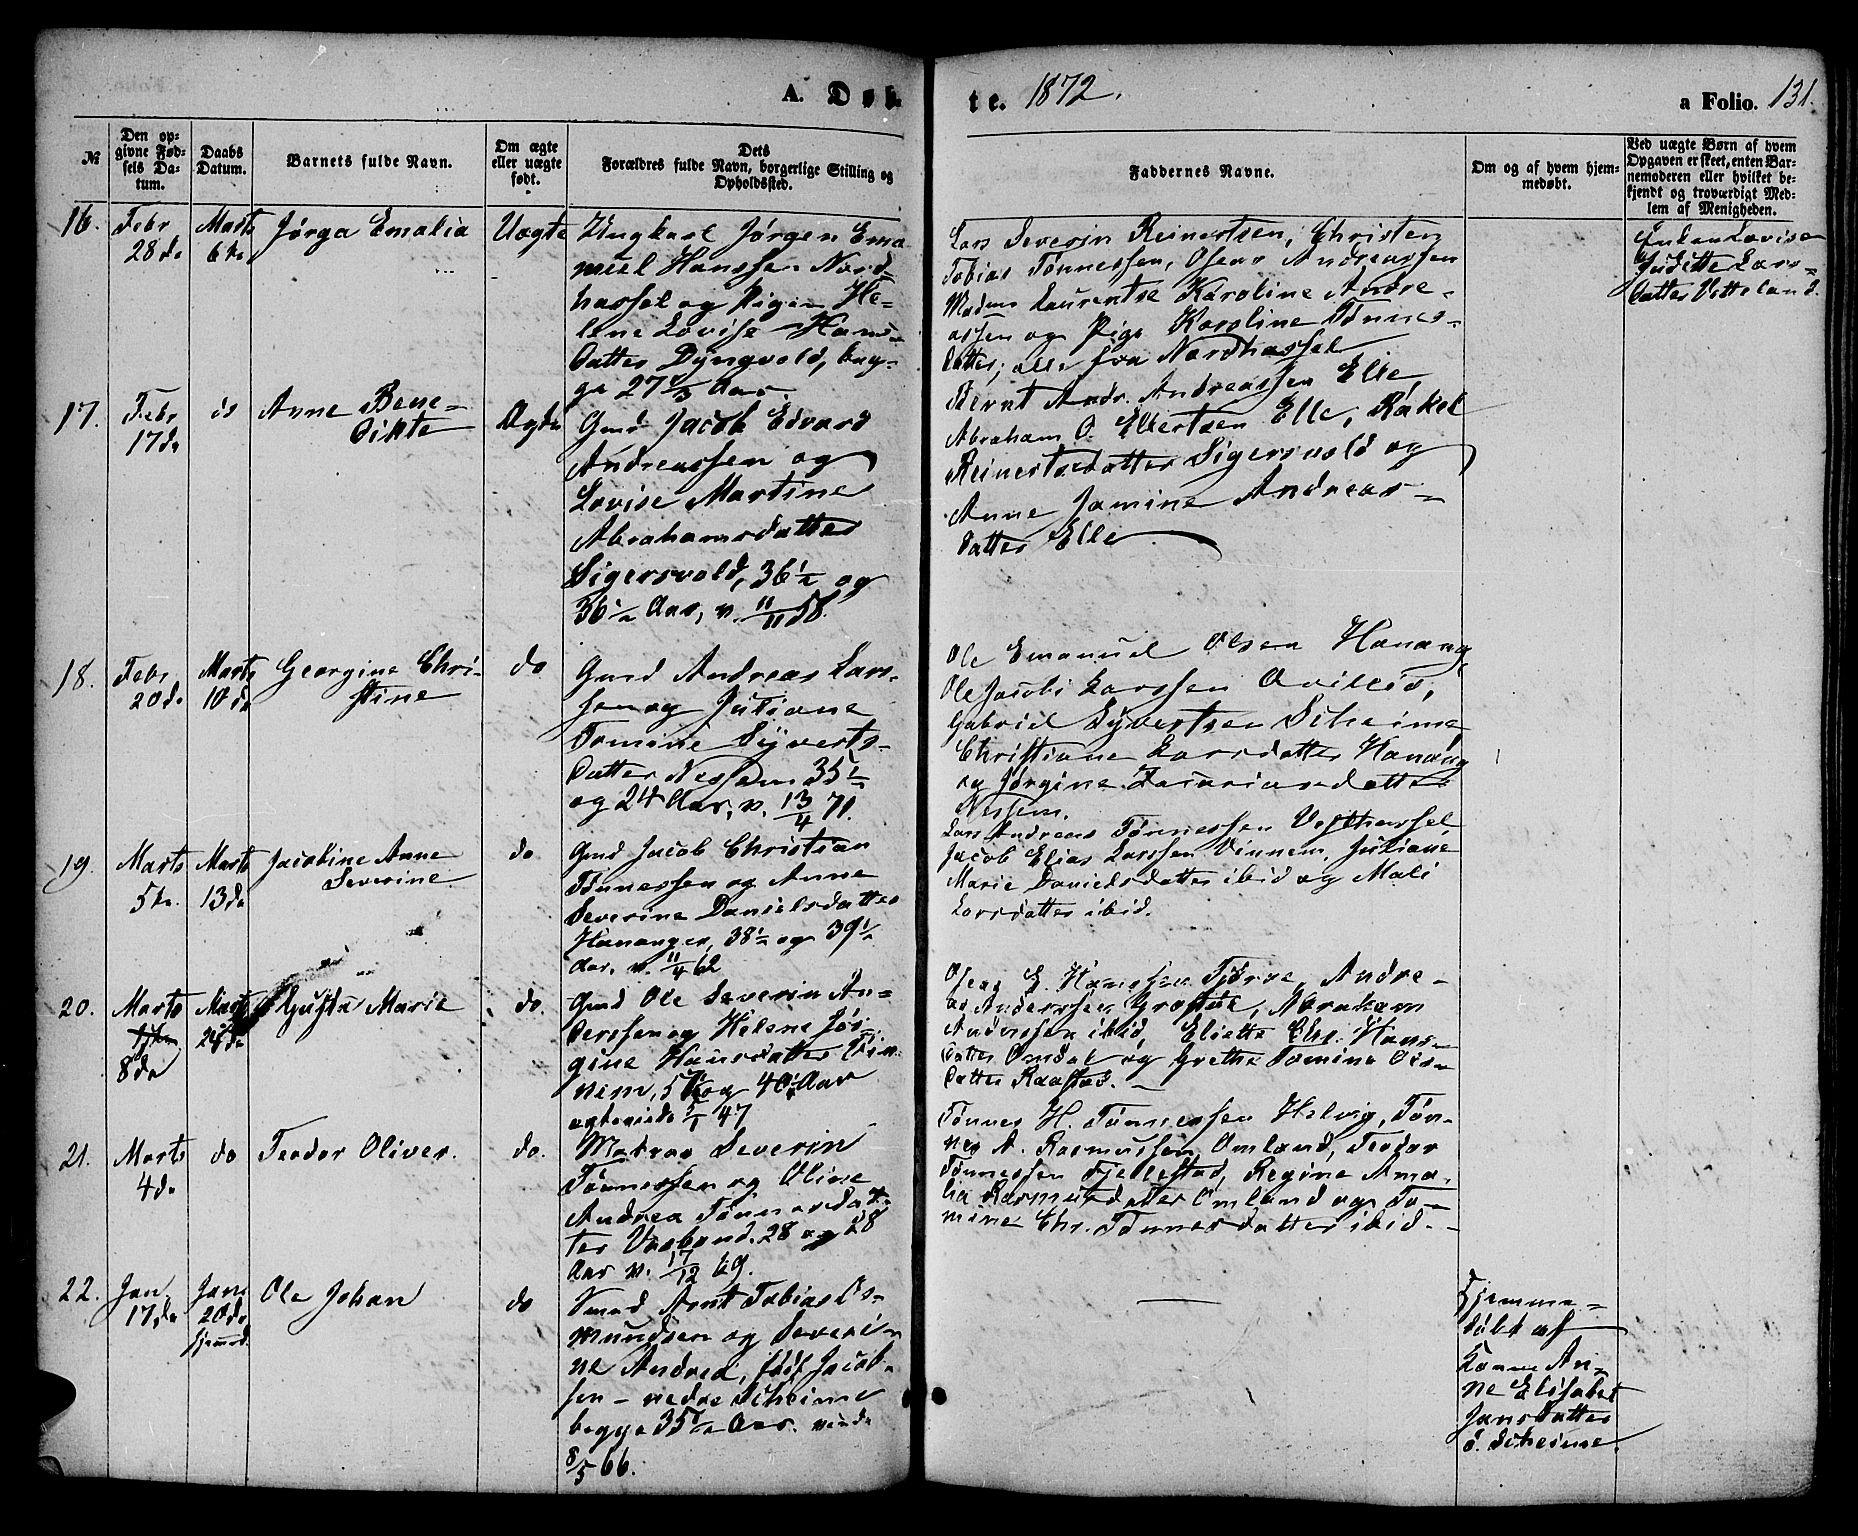 A. Døb-
te. 1872.
a Folio. 131.
№
Den op-
givne Fød-
sels Da-
tum.
Daabs
Datum.
Barnets fulde Navn.
Om ægte
eller uægte
født.
Dets
Forældres fulde Navn, borgerlige Stilling og
Opholdssted.
Faddernes Navne.
Om og af hvem hjem-
medøbt.
Ved uægte Børn af hvem
Opgaven er skeet, enten Bar-
nemoderen eller hvilket be-
kjendt og troværdigt Med-
lem af Menigheden.
16.
Febr
28de
Marts
6te
Jørga Emalia
Uægte
Ungkarl Jørgen Ema
nuel Hanssen Nord-
hassel og Pigen He-
lene Lovise Hans-
datter Dyngvold, beg-
ge 27 Aar.
Lars Severin Reinertsen, Christen
Tobias Tønnessen, Osear Andreassen
Madm Laurentse Karoline Andre-
assen og Pige Karoline Tønnes-
datter, alle fra Nordhassel
Enken Lovise
Judette Lars-
datter Vetteland.
17.
Febr
17de
do
Anne Bene-
dikte
Ægte
Gmd Jacob Edvard
Andreassen og
Lovise Martine
Abrahamsdatter
Sigersvold, 36½ og
36½ Aar, v. 11/11 58.
Bernt Andr. Andreassen Elle,
Abraham O. Ellertsen Elle, Rakel
Reinertsdatter Sigersvold og
Anne Jamine Andreas-
datter Elle.
18.
Febr
20de
Marts
10de
Georgine Chri-
stine
do
Gmd Andreas Lars-
sen og Juliane
Tomine Syverts-
datter Nessem 35½
og 24 Aar, v. 13/4 71.
Ole Emanuel Olsen Hanang
Ole Jacobi Larssen
Gabriel Syvertsen Scheime
Christiane Larsdatter Hanang
og Jørgine Zacariasdatter
Nessem.
19.
Marts
5te.
Marts
13de
Jacobine Anne
Severine.
do
Gmd Jacob Christian
Tønnessen og Anne
Severine Danielsdatter
Hananger, 38½ og 39½
Aar. v. 11/4 62
Lars Andreas Tønnessen Vesthassel
Jacob Elias Larssen Vinnem, Juliane
Marie Danielsdatter ibid og Mali
Larsdatter ibid.
20.
Marts
8de
Marts
24de
Gusta Marie
do.
Gmd Ole Severin An-
derssen og Helene Jør-
gine Hansdatter Vin-
nem, og 40½ Aar
47
Osear E. Hanssen Tjørve, Andre-
as Anderssen Grostøl, Abraham
Andrssen ibid, Eliette Chr. Hans-
datter Omdal og Grethe Tomine Ols-
datter Raastad.
21.
Marts
4de
do
Teodor Oliver.
do.
Matros Severin
Tønnessen og Oline
Andrea Tønnesdat-
ter Vasland, 28 og 28
Aar v. 17/12 69.
Tønnes H. Tønnessen Helvig, Tøn-
nes A. Rasmussen Omland, Teodor
Tønnessen Fjellestad, Regine Ama-
lia Rasmusdatter Omland og To-
mine Chr. Tønnesdatter ibid.
22.
Jan.
17de
Jan.
20de
hjemmed.
Ole Johan
do
Smed Arnt Tobias Os-
mundsen og Severi-
ne Andrea, født Jacob-
sen - nedre Scheime
begge 35½ Aar. viede
8/5 66.
Hjemme-
døbt af
Konen An-
ne Elisabet
Jansdatter
Scheime.